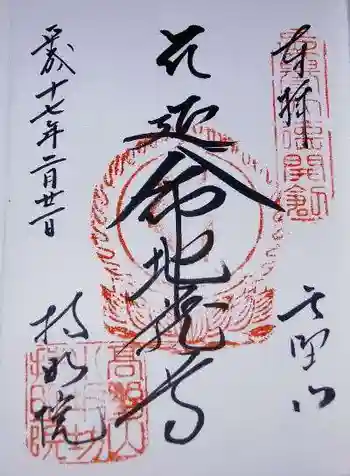 奉拝
高野山
延命地蔵尊
平成十七年二月廿一日
持明院
高野山
小坂坊
持明院